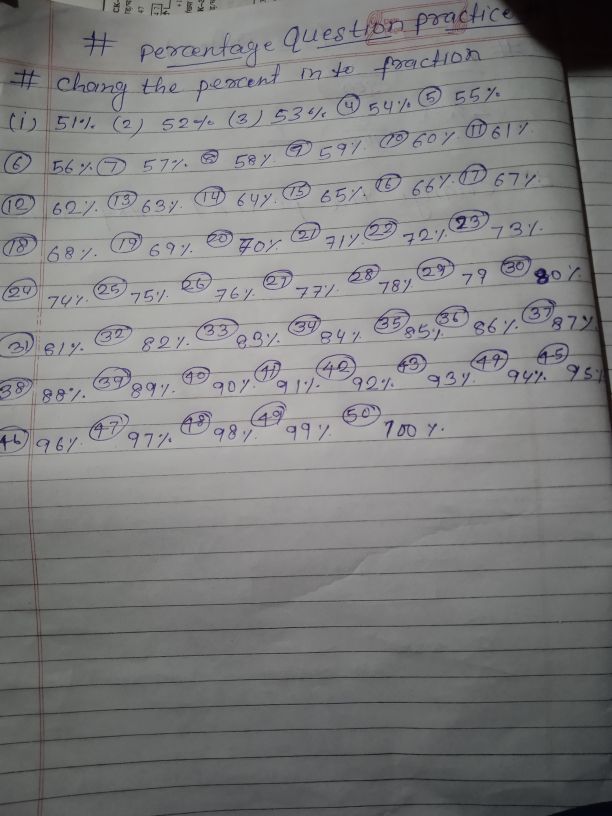 # percentage Question practice
# chang the percent in to fraction
(i) 51% (2) 52% (3) 53% ④ 54% ⑤ 55%
⑥ 56% ⑦ 57% ⑧ 58% ⑨ 59% ⑩ 60% ⑪ 61%
⑫ 62% ⑬ 63% ⑭ 64% ⑮ 65% ⑯ 66% ⑰ 67%
⑱ 68% ⑲ 69% ⑳ 70% ㉑ 71% ㉒ 72% ㉓ 73%
㉔ 74% ㉕ 75% ㉖ 76% ㉗ 77% ㉘ 78% ㉙ 79 ㉚ 80%
㉛ 81% ㉜ 82% ㉝ 83% ㉞ 84% ㉟ 85% ㊱ 86% ㊲ 87%
㊳ 88% ㊴ 89% ㊵ 90% ㊶ 91% ㊷ 92% ㊸ 93% ㊹ 94% ㊺ 95%
㊻ 96% ㊼ 97% ㊽ 98% ㊾ 99% ㊿ 100%